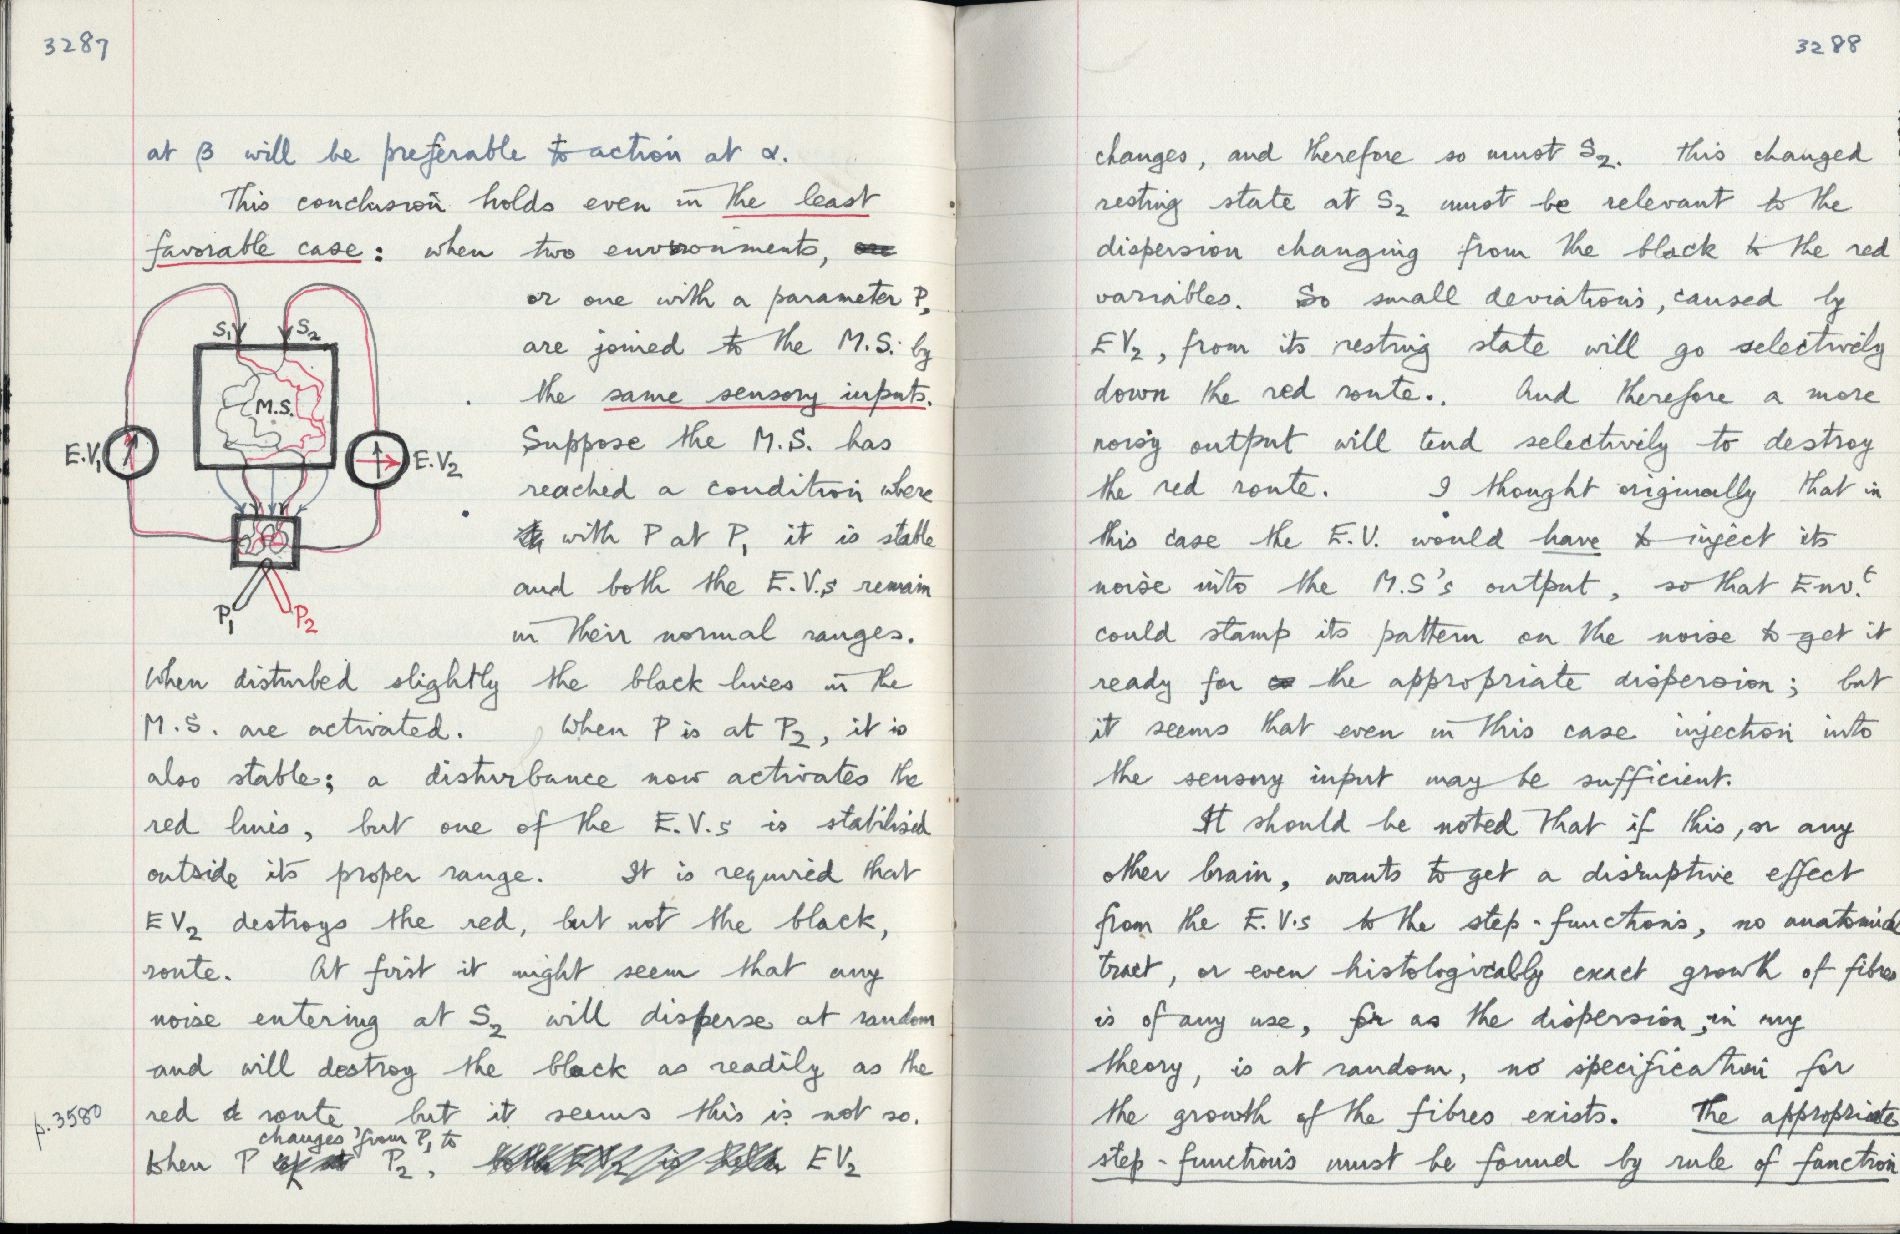 3287
at β will be preferable to action at α.
This conclusion holds even in the least
favorable case: when two environments, are
or one with a parameter P,
are joined to the M.S. by
the same sensory inputs.
Suppose the M.S. has
reached a condition where
with P at P1 it is stable
and both the E.V.s remain
in their normal ranges.
S1 S2
M.S.
E.V1 E.V2
P1 P2
When disturbed slightly the black lines in the
M.S. are activated. When P is at P2, it is
also stable; a disturbance now activates the
red lines, but one of the E.V.s is stabilised
outside its proper range. It is required that
EV2 destroys the red, but not the black,
route. At first it might seem that any
noise entering at S2 will disperse at random
and will destroy the black as readily as the
p.3580
red route but it seems this is not so.
changes from P1 to
When P P2, EV2
3288
changes, and therefore so must S2. This changed
resting state at S2 must be relevant to the
dispersion changing from the black to the red
variables. So small deviations, caused by
EV2, from its resting state will go selectively
down the red route. And therefore a more
noisy output will tend selectively to destroy
the red route. I thought originally that in
this case the E.V. would have to inject its
noise into the M.S's output, so that Env.t
could stamp its pattern on the noise to get it
ready for the appropriate dispersion; but
it seems that even in this case injection into
the sensory input may be sufficient.
It should be noted that if this, or any
other brain, wants to get a disruptive effect
from the E.V.s to the step-functions, no anatomical
tract, or even histologically exact growth of fibres
is of any use, for as the dispersion, in my
theory, is at random, no specification for
the growth of the fibres exists. The appropriate
step-functions must be found by rule of function